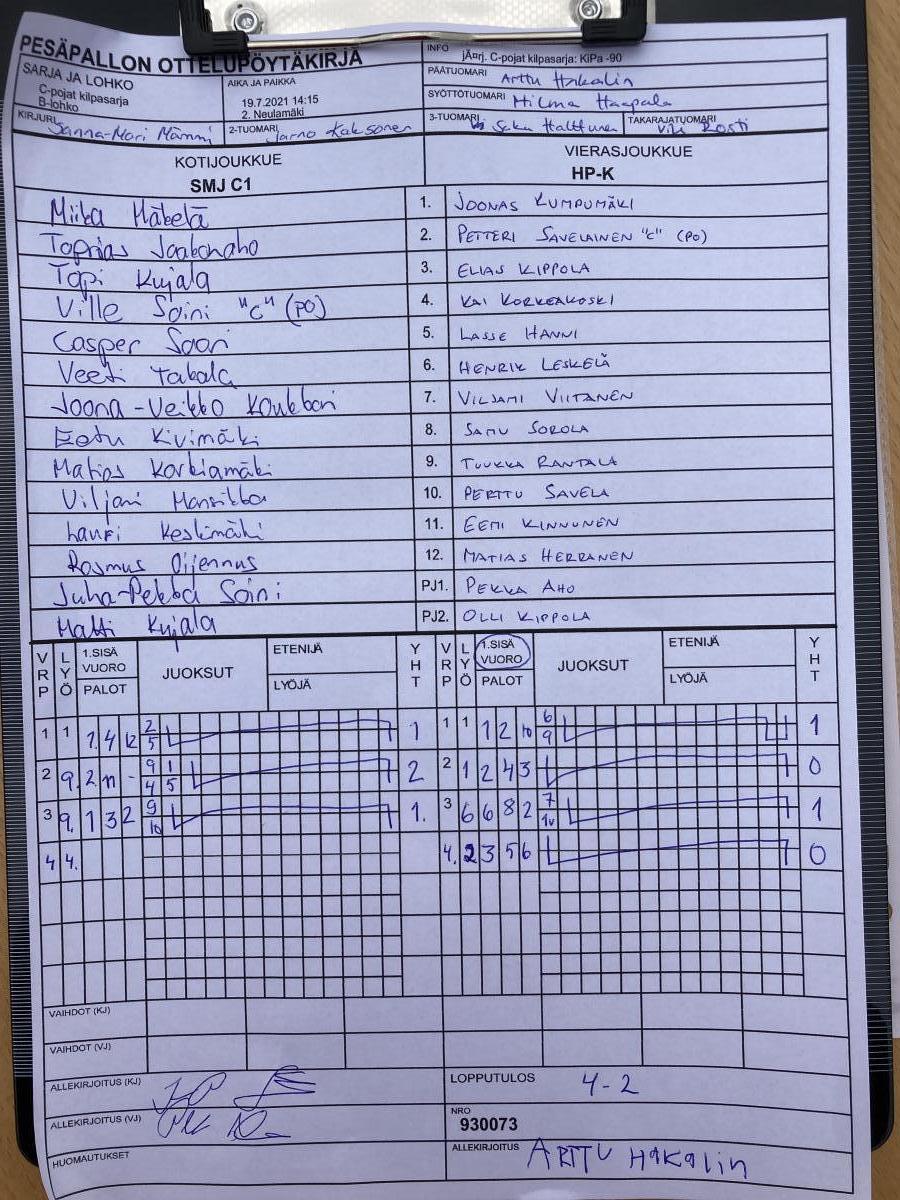 PESÄPALLON OTTELUPÖYTÄKIRJA
SARJA JA LOHKO
C-pojat kilpasarja
B-lohko
AIKA JA PAIKKA
19.7.2021 14:15
2. Neulamäki
INFO
jÄ¤rj. C-pojat kilpasarja: KiPa -90
PÄÄTUOMARI Arttu Hakalin
SYÖTTÖTUOMARI Hilma Haapala
KIRJURI Sanna-Mari Mämmi
2-TUOMARI Jarno Kaksonen
3-TUOMARI Saku Halttunen
TAKARAJATUOMARI Vili Rosti
KOTIJOUKKUE
SMJ C1
VIERASJOUKKUE
HP-K
Miika Mäkelä 1. JOONAS KUMPUMÄKI
Topias Jaakonaho 2. PETTERI SAVELAINEN "C" (PO)
Topi Kujala 3. ELIAS KIPPOLA
Ville Soini "C" (PO) 4. KAI KORKEAKOSKI
Casper Saari 5. LASSE HANNI
Veeti Takala 6. HENRIK LESKELÄ
Joona-Veikko Koukkari 7. VILJAMI VIITANEN
Eetu Kivimäki 8. SAMU SOROLA
Matias Korkiamäki 9. TUUKKA RANTALA
Viljami Mansikka 10. PERTTU SAVELA
Lauri Keskimäki 11. EEMI KINNUNEN
Rasmus Oijennus 12. MATIAS HERRANEN
Juha-Pekka Soini PJ1. PEKKA AHO
Matti Kujala PJ2. OLLI KIPPOLA
VRP LYÖ 1.SISÄ VUORO PALOT JUOKSUT ETENIJÄ LYÖJÄ YHT VRP LYÖ 1.SISÄ VUORO PALOT JUOKSUT ETENIJÄ LYÖJÄ YHT
1 1 7. 4 12 2/5 1 1 1 1 2 10 6/9 1
2 9. 2 11 - 9/4 1/5 2 2 1 2 4 3 0
3 9. 1 3 2 9/10 1. 3 6 6 8 2 7/10 1
4 4. 4. 2 3 5 6 0
VAIHDOT (KJ)
VAIHDOT (VJ)
ALLEKIRJOITUS (KJ)
LOPPUTULOS 4-2
ALLEKIRJOITUS (VJ)
NRO
930073
HUOMAUTUKSET
ALLEKIRJOITUS ARTTU HAKALIN